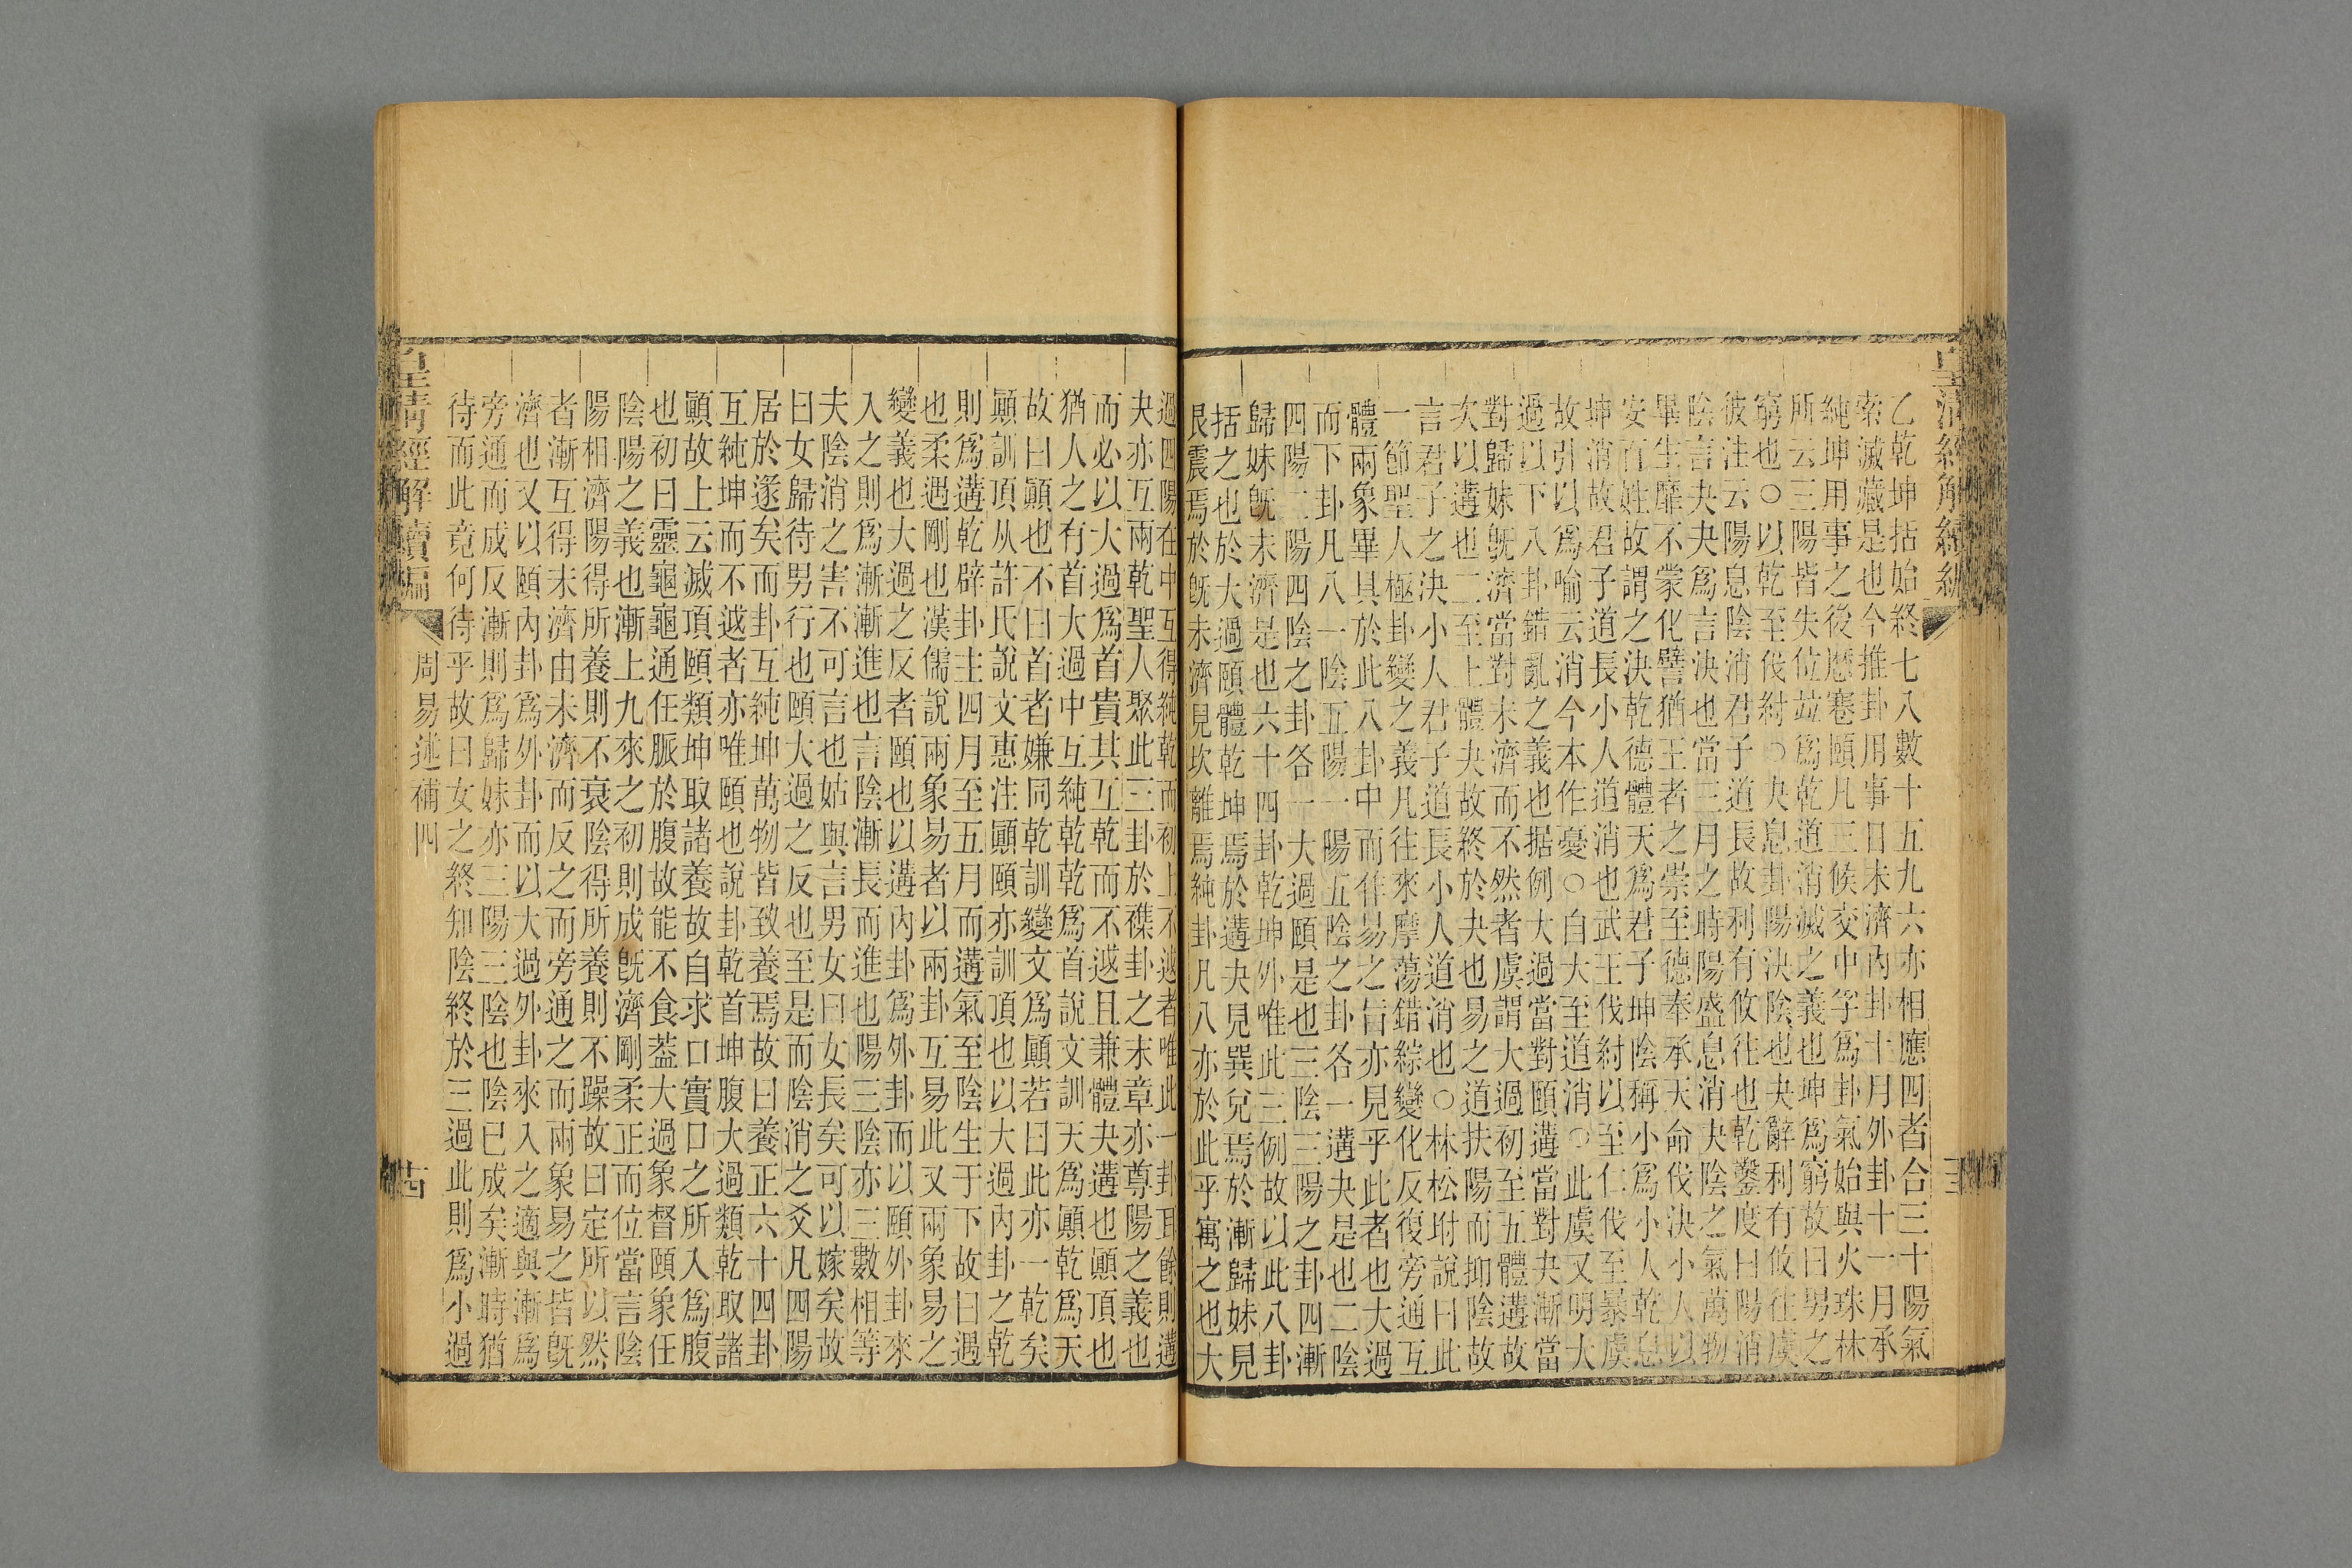 皇清經解續編
乙乾坤括始終七八數十五九六亦相應四者合三十陽氣
索滅藏是也今推卦用事日未濟內卦十月外卦十一月承
純坤用事之後歴蹇頤凡三候交中孚爲卦氣始與火珠林
所云三陽皆失位竝爲乾道消滅之義也坤爲窮故曰男之
窮也○以乾至伐紂○夬息卦陽決陰也夬辭利有攸往虞
彼注云陽息陰消君子道長故利有攸往也乾鑿度曰陽消
陰言夬夬爲言決也當三月之時陽盛息消夬陰之氣萬物
畢生靡不蒙化譬猶王者之崇至德奉承天命伐決小人以
安百姓故謂之決乾德體天爲君子坤陰稱小爲小人乾息
坤消故君子道長小人道消也武王伐紂以至仁伐至暴虞
故引以爲喻云消今本作憂○自大至道消○此虞又明大
過以下八卦錯亂之義也据例大過當對頤遘當對夬漸當
對歸妹旣濟當對未濟而不然者虞謂大過初至五體遘故
次以遘也二至上體夬故終於夬也易之道扶陽而抑陰故
言君子之決小人君子道長小人道消也○林松坿說曰此
一節聖人極卦變之義凡往來摩蕩錯綜變化反復旁通互
體兩象畢具於此八卦中而作易之旨亦見乎此者也大過
而下卦凡八一陰五陽一陽五陰之卦各一遘夬是也二陰
四陽二陽四陰之卦各一大過頤是也三陰三陽之卦四漸
歸妹旣未濟是也六十四卦乾坤外唯此三例故以此八卦
括之也於大過頤體乾坤焉於遘夬見巽兌焉於漸歸妹見
艮震焉於旣未濟見坎離焉純卦凡八亦於此乎寓之也大
過四陽在中互得純乾而初上不越者唯此一卦耳餘則遘
夬亦互兩乾聖人聚此三卦於襍卦之末章亦尊陽之義也
而必以大過爲首貴其互乾而不越且兼體夬遘也顚頂也
猶人之有首大過中互純乾乾爲首說文訓天爲顚乾爲天
故曰顚也不曰首者嫌同乾訓變文爲顚若曰此亦一乾矣
顚訓頂从許氏說文惠注顚頤亦訓頂也以大過內卦之乾
則爲遘乾辟卦主四月至五月而遘氣至陰生于下故曰遇
也柔遇剛也漢儒說兩象易者以兩卦互易此又兩象易之
變義也大過之反者頤也以遘內卦爲外卦而以頤外卦來
入之則爲漸漸進也言陰漸長而進也陽三陰亦三數相等
夫陰消之害不可言也姑與言男女曰女長矣可以嫁矣故
曰女歸待男行也頤大過之反也至是而陰消之爻凡四陽
居於遂矣而卦互純坤萬物皆致養焉故曰養正六十四卦
互純坤而不越者亦唯頤也說卦乾首坤腹大過類乾取諸
顚故上云滅頂頤類坤取諸養故自求口實口之所入爲腹
也初曰靈龜龜通任脈於腹故能不食葢大過象督頤象任
陰陽之義也漸上九來之初則成旣濟剛柔正而位當言陰
陽相濟陽得所養則不衰陰得所養則不躁故曰定所以然
者漸互得未濟由未濟而反之而旁通之而兩象易之皆旣
濟也又以頤內卦爲外卦而以大過外卦來入之適與漸爲
旁通而成反漸則爲歸妹亦三陽三陰也陰已成矣漸時猶
待而此竟何待乎故曰女之終知陰終於三過此則爲小過
皇清經解續編
周易述補四